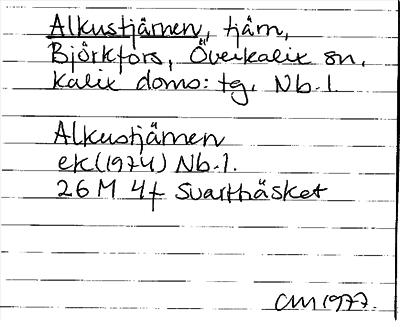 Alkustjärnen, tjärn,
Björkfors, Överkalix sn,
Kalix doms: tg, Nb. l.
Alkustjärnen
ek (1974) Nb. l.
26 M 4f Svartbäsket
CM 1977.